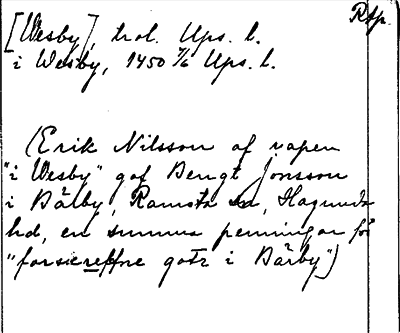 Rtp.
[Wesby], trol. Ups. l.
i Wesby, 1450 7/6 Ups. l.
(Erik Nilsson af vapen
"i Wesby" gaf Bengt Jonsson
i Bärby, Ramsta sn, Hagunda
hd, en summa penningar för
gotz i Bärby")